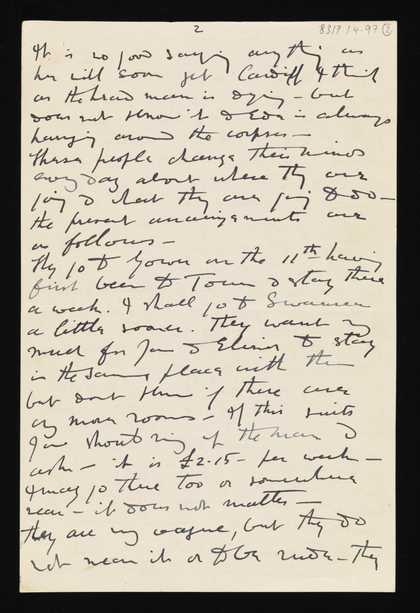 2
8317/4-97 2
It is no good saying anything as
he will soon get Cardiff I think
as the head man is dying - but
does not know it & Eda is always
hanging around the corpse -
These people change their minds
every day about where they are
going & what they are going to do -
the present arrangements are
as follows -
They go to Gower on the 11th having
first been to Town to stay there
a week. I shall go to Swansea
a little sooner. They want
much for you & Elinor to stay
in the same place with them
but dont know if there are
any more rooms - If this suits
you should ring up the man &
ask - it is £2.15 - per week -
I may go there too or somewhere
near - it does not matter -
they are very vague, but they do
not mean it or to be rude - they